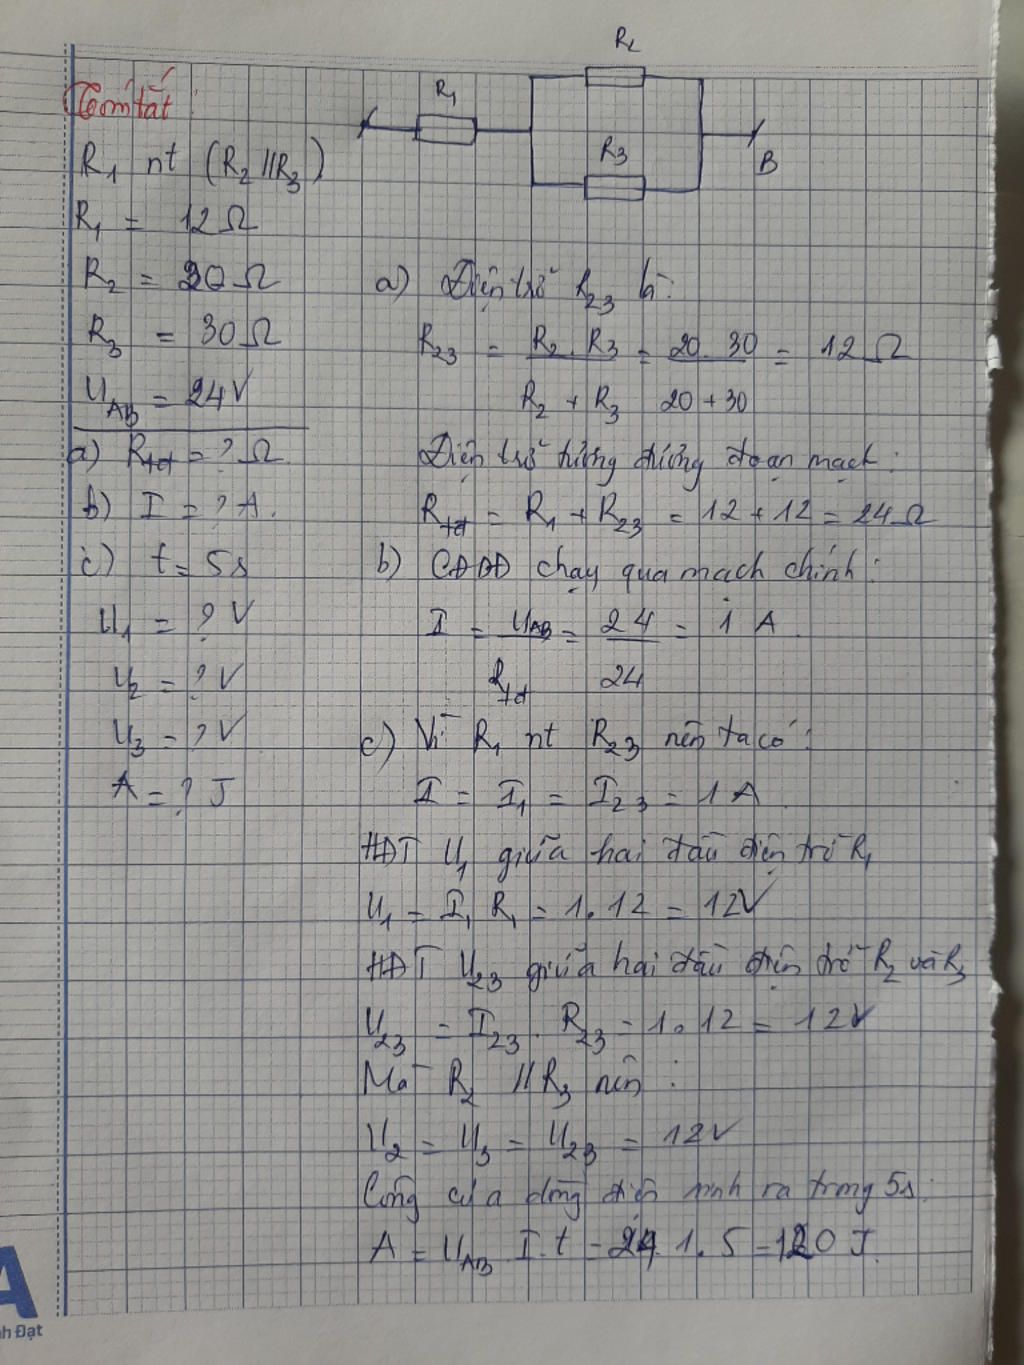 Tóm tắt :
R₁ nt (R₂ // R₃)
R₁ = 12 Ω
R₂ = 20 Ω
R₃ = 30 Ω
U_AB = 24 V
a) R_tđ = ? Ω
b) I = ? A.
c) t = 5s
U₁ = ? V
U₂ = ? V
U₃ = ? V
A = ? J
R₁
R₂
R₃
B
a) Điện trở R₂₃ là:
R₂₃ = R₂ . R₃ / R₂ + R₃ = 20 . 30 / 20 + 30 = 12 Ω
Điện trở tương đương đoạn mạch :
R_tđ = R₁ + R₂₃ = 12 + 12 = 24 Ω
b) CĐDĐ chạy qua mạch chính :
I = U_AB / R_tđ = 24 / 24 = 1 A
c) Vì R₁ nt R₂₃ nên ta có :
I = I₁ = I₂₃ = 1 A
HĐT U₁ giữa hai đầu điện trở R₁
U₁ = I₁ R₁ = 1 . 12 = 12 V
HĐT U₂₃ giữa hai đầu điện trở R₂ và R₃
U₂₃ = I₂₃ . R₂₃ = 1 . 12 = 12 V
Mà R₂ // R₃ nên :
U₂ = U₃ = U₂₃ = 12 V
Công của dòng điện sinh ra trong 5s :
A = U_AB . I . t = 24 . 1 . 5 = 120 J.
A
nh Đạt